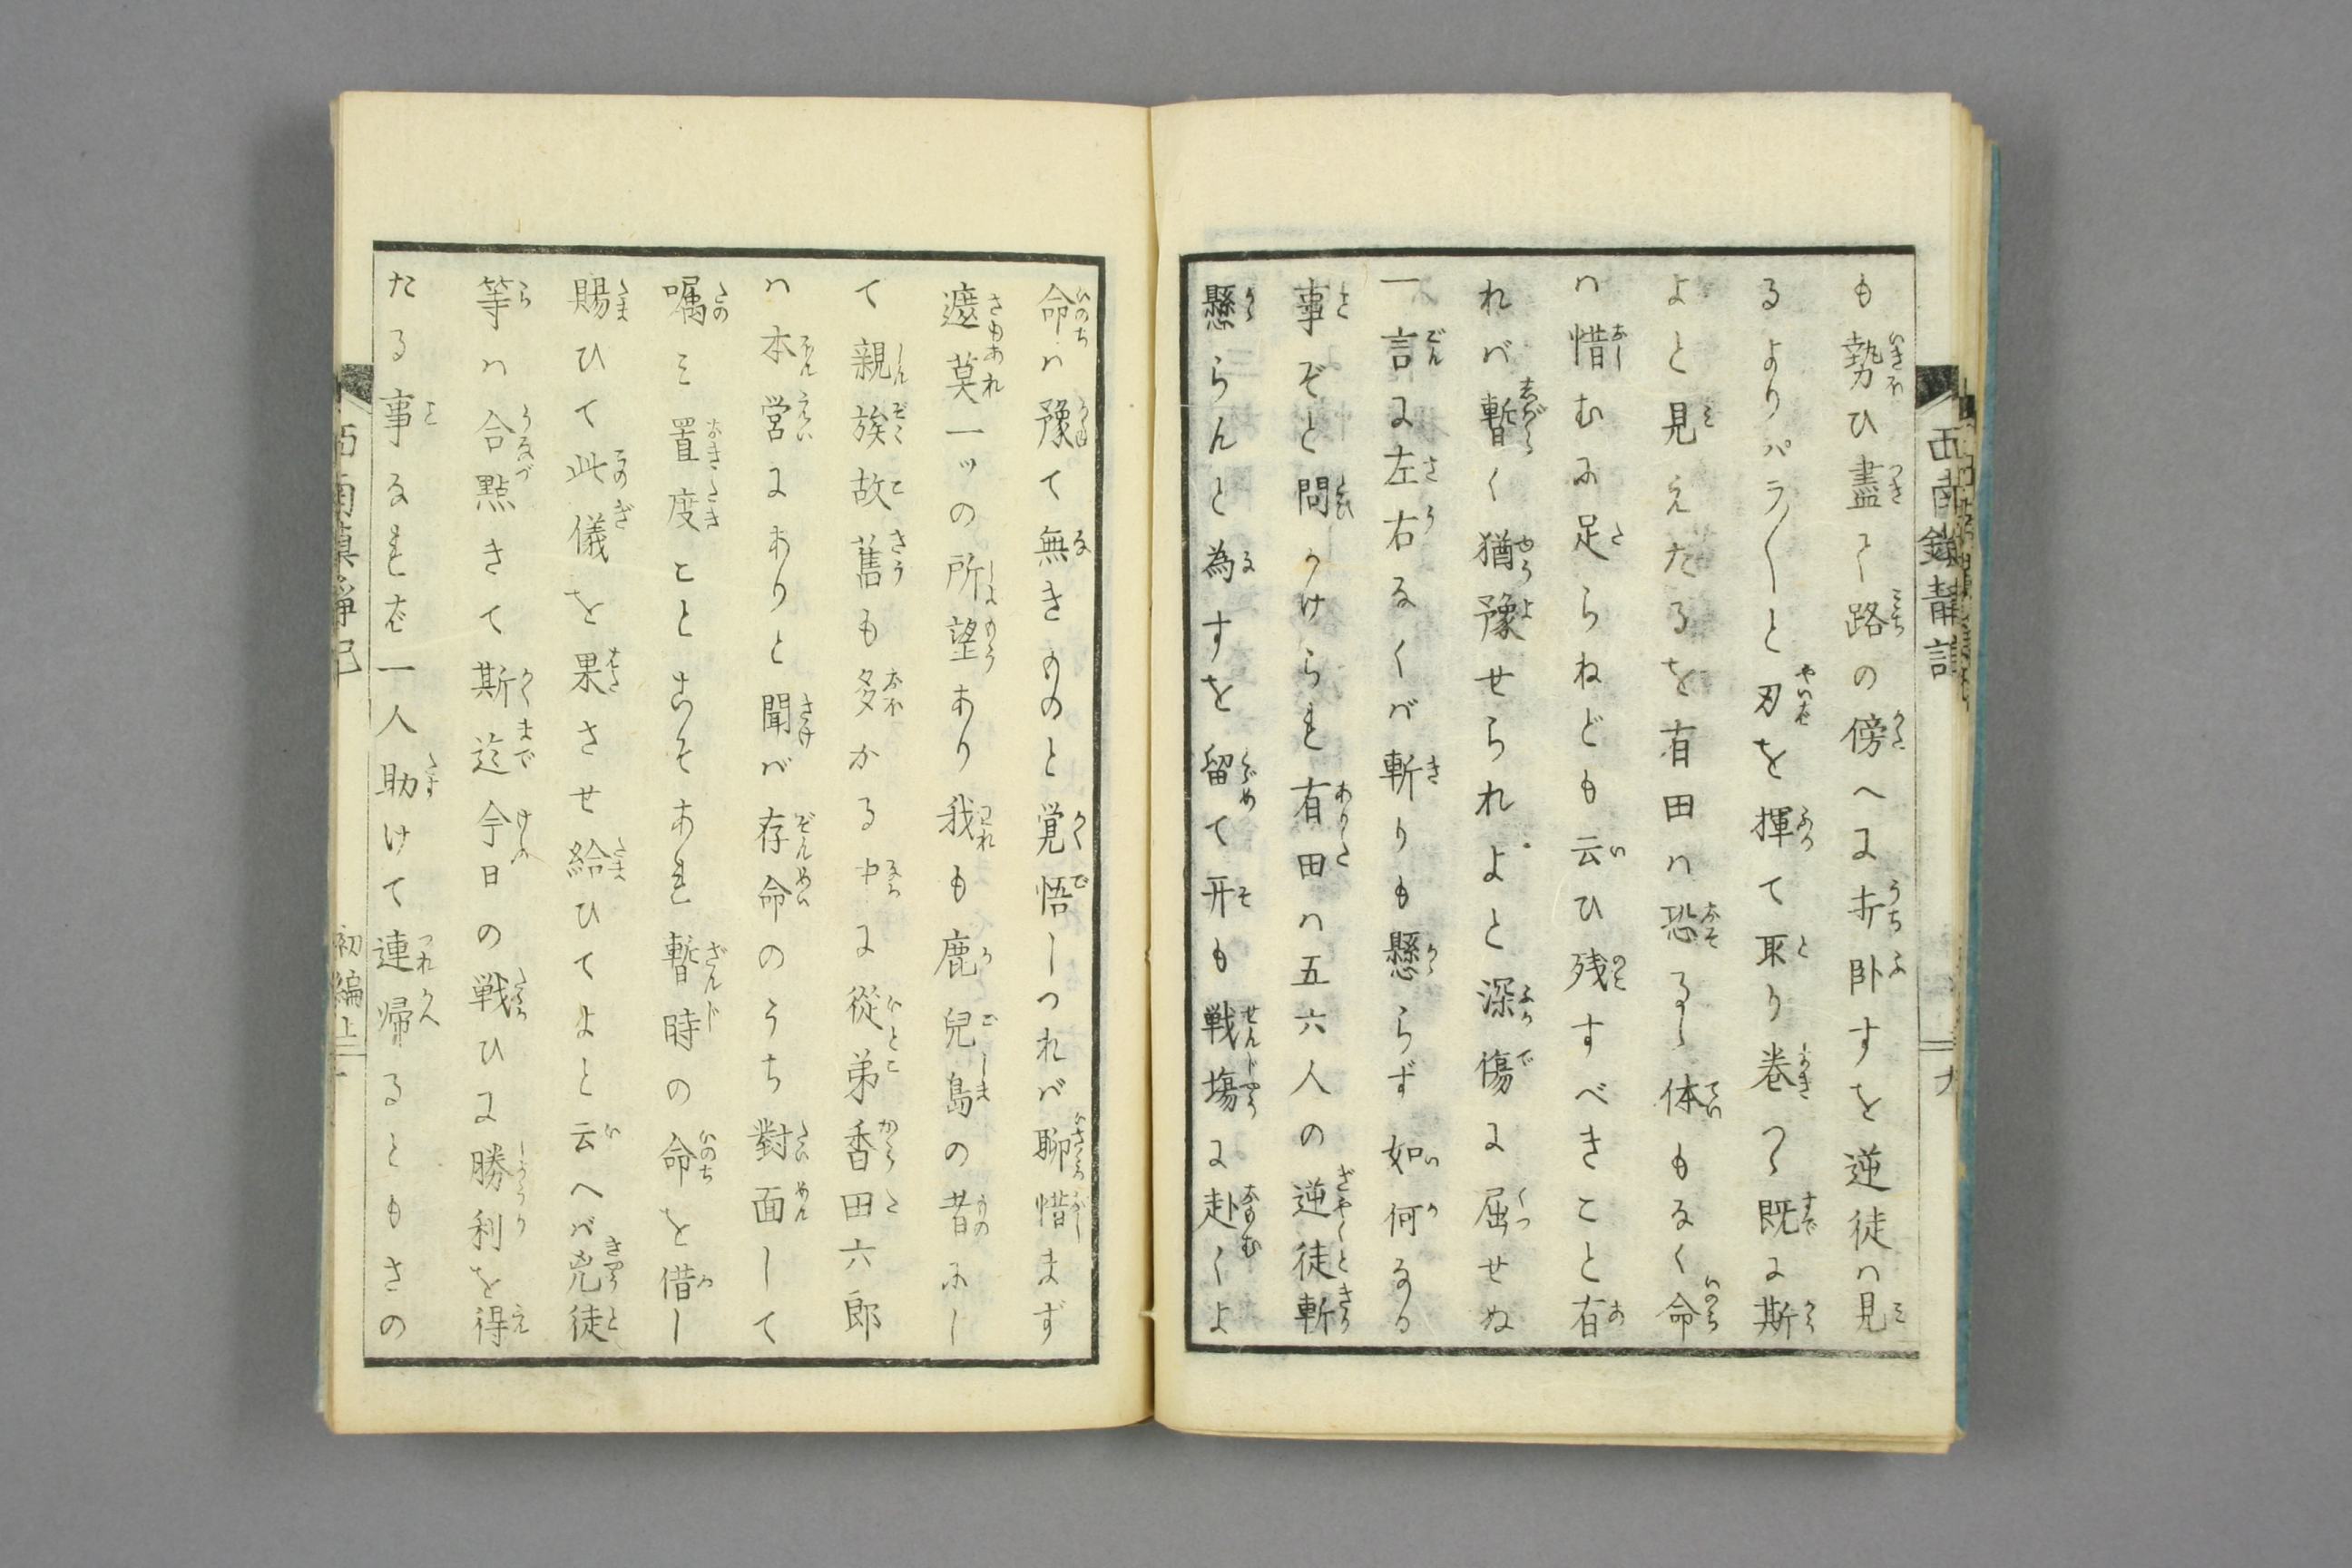 西南鎮静記
も勢ひ盡て路の傍へに打臥すを逆徒ハ見
るよりパラ〳〵と刃を揮て取り巻つゝ既に斯
よと見えたるを有田ハ恐るゝ体もなく命
ハ惜むに足らねども云ひ残すべきこと有
れバ暫く猶豫せられよと深傷に屈せぬ
一言に左右なくバ斬りも懸らず如何なる
事ぞと問かけられ有田ハ五六人の逆徒斬
懸らんと為すを留て开も戦場に赴くよ
命ハ豫て無きものと覚悟しつれバ聊惜まず
遮莫一ッの所望あり我も鹿兒島の者にし
て親族故舊も多かる中に從弟香田六郎
ハ本営にありと聞バ存命のうち對面して
嘱ミ置度ことこそあれ暫時の命を借し
賜ひて此儀を果させ給ひてよと云へバ兇徒
等ハ合點きて斯迄今日の戦ひに勝利を得
たる事なれば一人助けて連帰るともさの
西南鎮静記
初編上